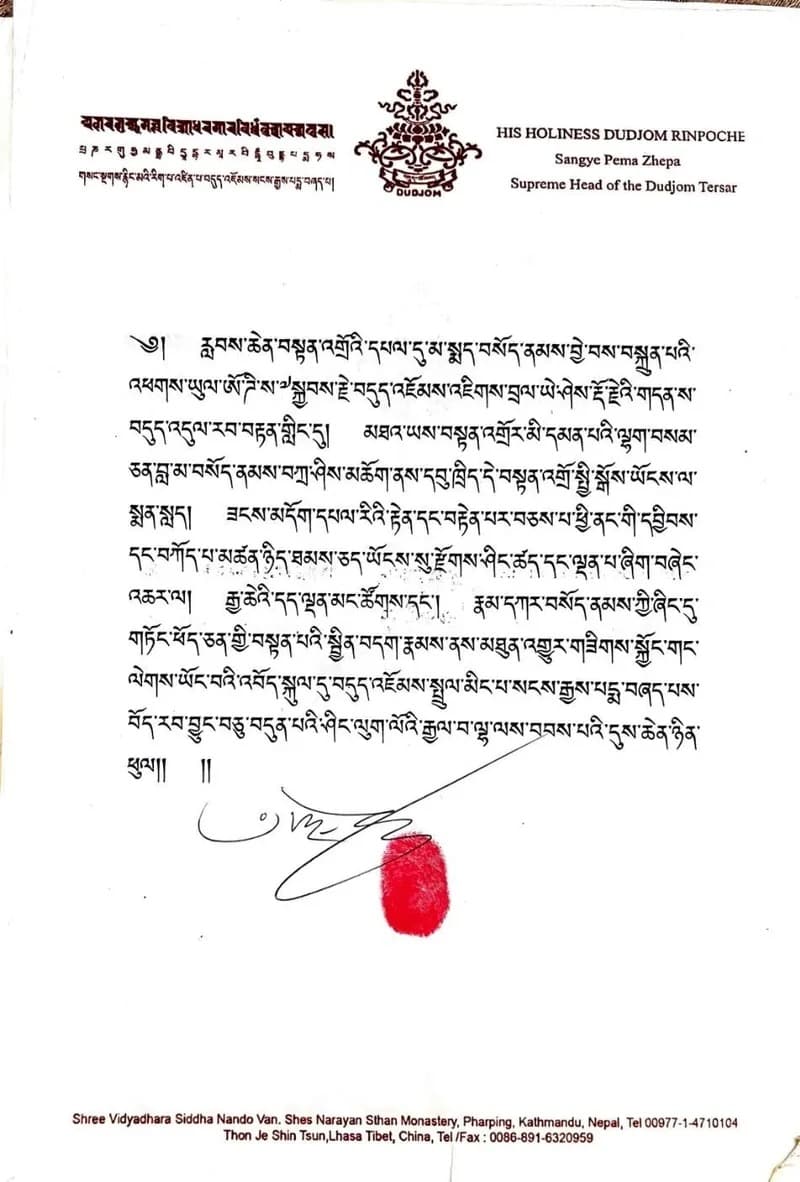 གསང་སྔགས་རྙིང་མའི་རིག་པ་འཛིན་པ་བདུད་འཇོམས་སངས་རྒྱས་པདྨ་བཞད་པ།
DUDJOM
HIS HOLINESS DUDJOM RINPOCHE
Sangye Pema Zhepa
Supreme Head of the Dudjom Tersar
༄། རླབས་ཆེན་བསྟན་འགྲོའི་དཔལ་དུ་མ་སྨད་བསོད་ནམས་བྱེ་བས་བསྐྲུན་པའི་
འཕགས་ཡུལ་ཨོ་ཌི་ས་༧སྐྱབས་རྗེ་བདུད་འཇོམས་འཇིགས་བྲལ་ཡེ་ཤེས་རྡོ་རྗེའི་གདན་ས་
བདུད་འདུལ་རབ་བརྟན་གླིང་དུ། མཐའ་ཡས་བསྟན་འགྲོར་མི་དམན་པའི་ལྷག་བསམ་
ཅན་བླ་མ་བསོད་ནམས་བཀྲ་ཤིས་མཆོག་ནས་དབུ་ཁྲིད་དེ་བསྟན་འགྲོ་སྤྱི་སྒོས་ཡོངས་ལ་
སྨན་སླད། ཟངས་མདོག་དཔལ་རིའི་རྟེན་དང་བརྟེན་པར་བཅས་པ་ཕྱི་ནང་གི་དབྱིབས་
དང་བཀོད་པ་མཚན་ཉིད་ཐམས་ཅད་ཡོངས་སུ་རྫོགས་ཤིང་ཚད་དང་ལྡན་པ་ཞིག་བཞེང་
འཆར་ལ། རྒྱ་ཆེའི་དད་ལྡན་མང་ཚོགས་དང་། རྣམ་དཀར་བསོད་ནམས་ཀྱི་ཞིང་དུ་
གཏོང་ཕོད་ཅན་གྱི་བསྟན་པའི་སྦྱིན་བདག་རྣམས་ནས་མཐུན་འགྱུར་གཟིགས་སྐྱོང་གང་
ལེགས་ཡོང་བའི་འབོད་སྐུལ་དུ་བདུད་འཇོམས་སྤྲུལ་མིང་པ་སངས་རྒྱས་པདྨ་བཞད་པས་
བོད་རབ་བྱུང་བཅུ་བདུན་པའི་ཤིང་ལུག་ལོའི་རྒྱལ་བ་ལྷ་ལས་བབས་པའི་དུས་ཆེན་ཉིན་
ཕུལ།། །།
Shree Vidyadhara Siddha Nando Van. Shes Narayan Sthan Monastery, Pharping, Kathmandu, Nepal, Tel 00977-1-4710104
Thon Je Shin Tsun,Lhasa Tibet, China, Tel /Fax : 0086-891-6320959